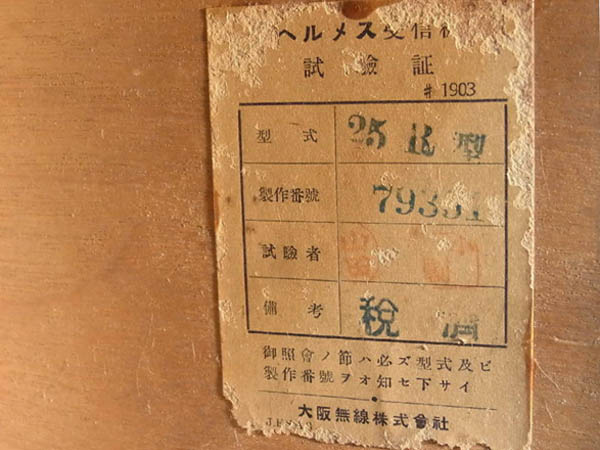 ヘルメス受信機
試験証
# 1903
型式 25 R 型
製作番號
試驗者
備考 税 濟
御照會ノ節ハ必ズ型式及ビ
製作番號ヲオ知セ下サイ
大阪無線株式會社